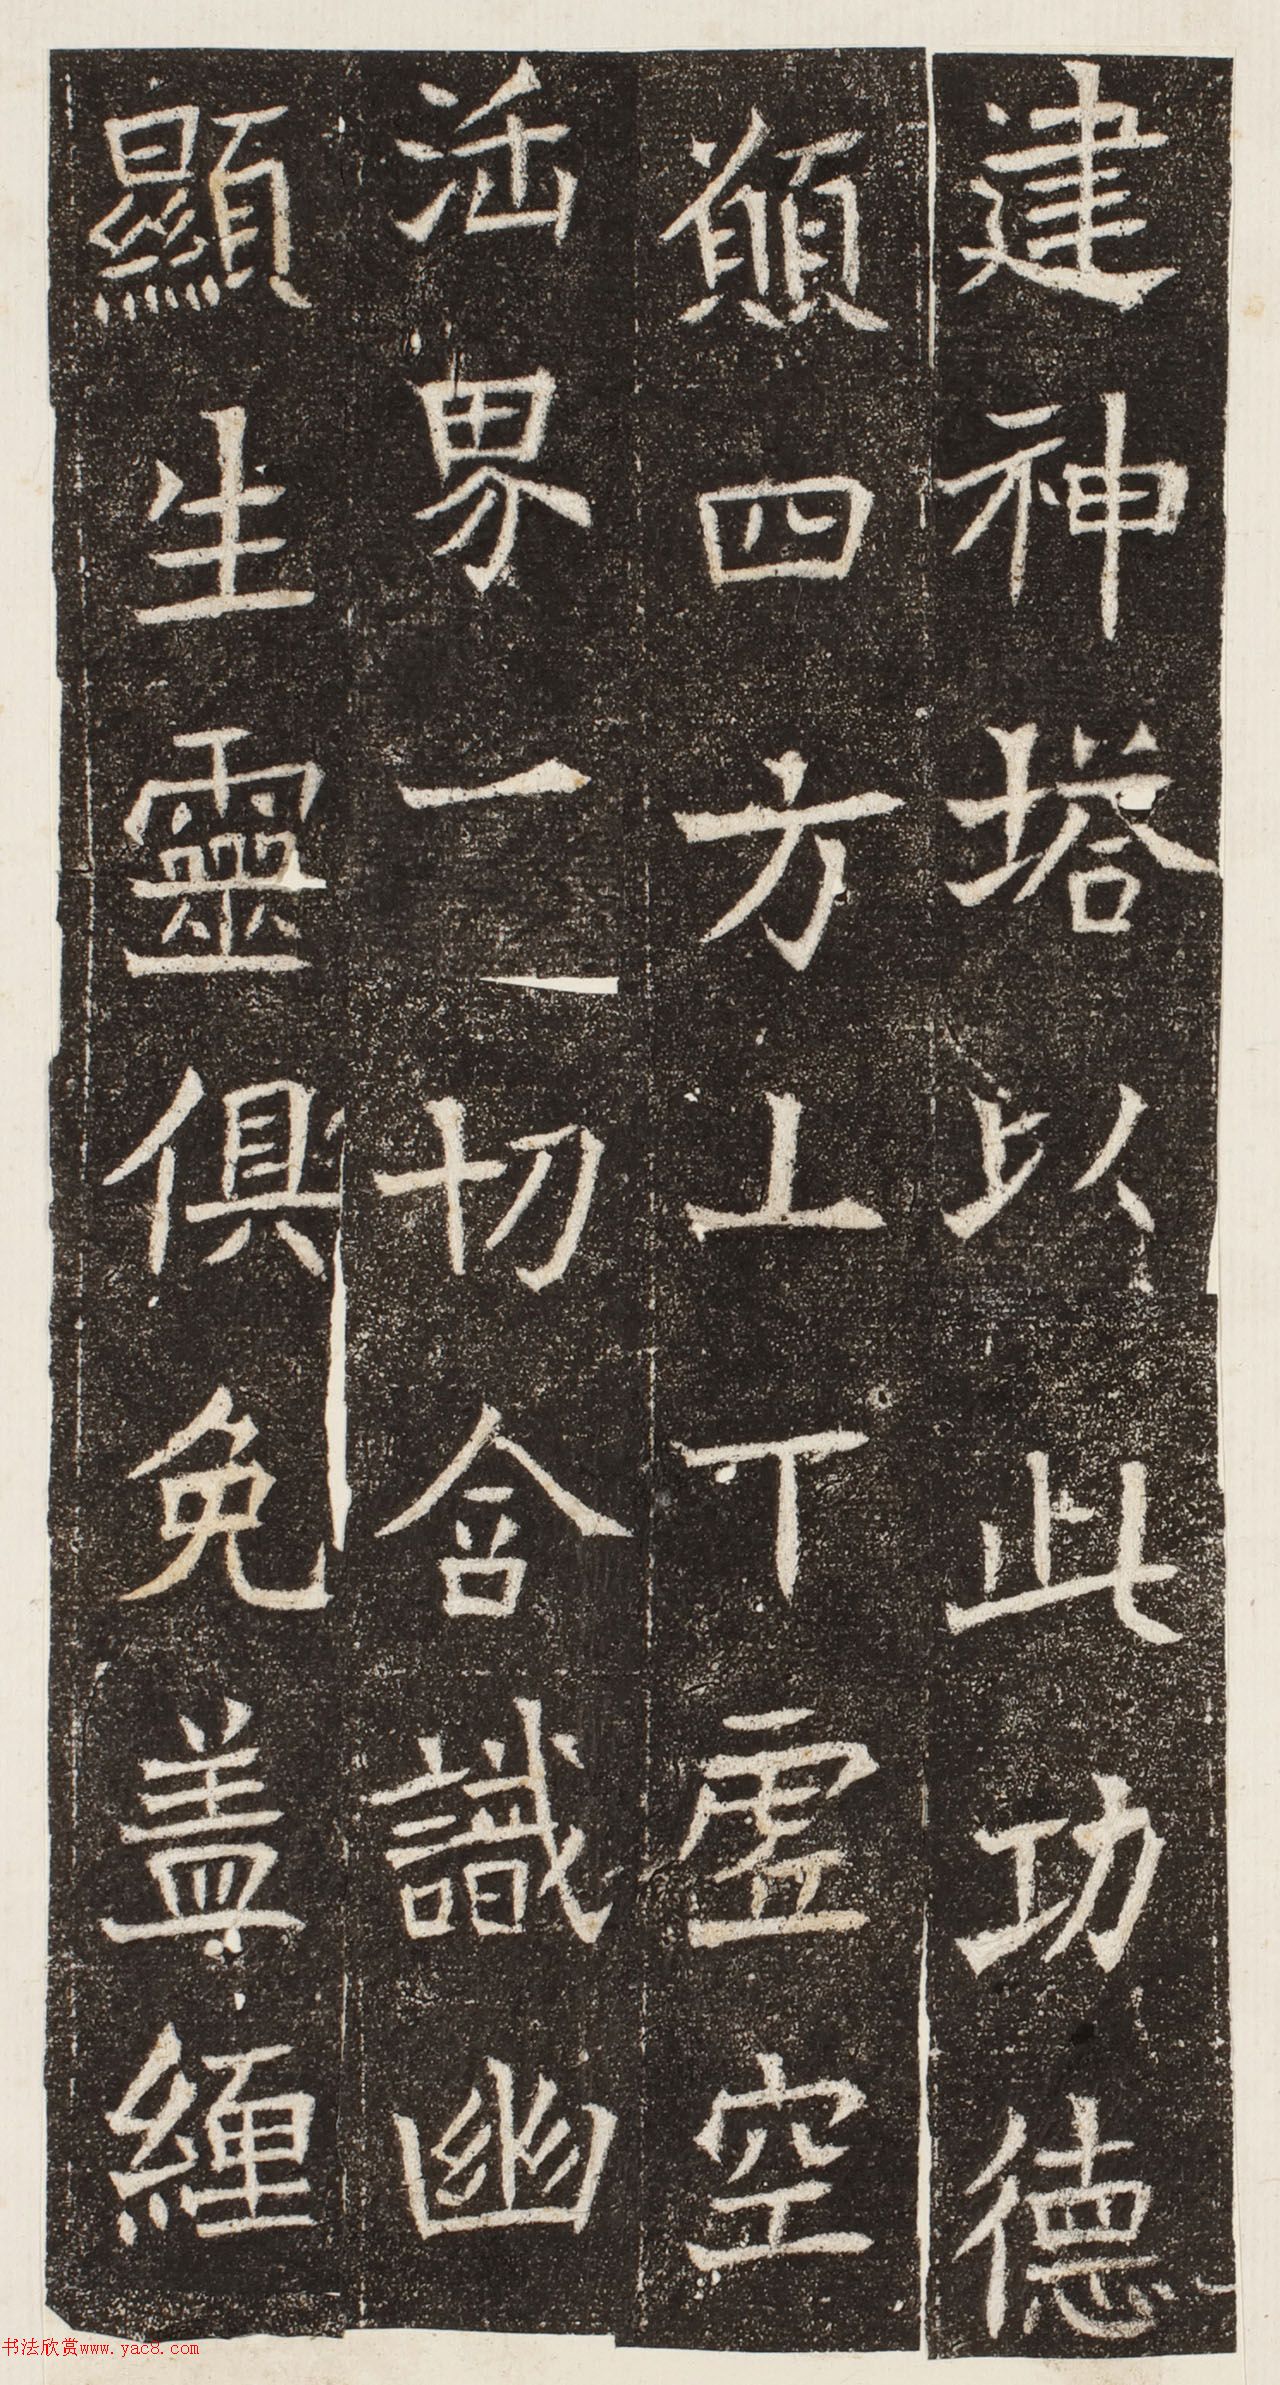 建神塔以此功德
願四方上下虛空
法界一切含識幽
顯生靈俱免盖緾
书法欣赏www.yac8.com